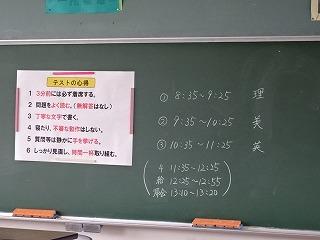 テストの心得
1 3分前には必ず着席する。
2 問題をよく読む。(無解答はなし)
3 丁寧な文字で書く。
4 寝たり、不審な動作はしない。
5 質問等は静かに手を挙げる。
6 しっかり見直し、時間一杯取り組む。
① 8:35~9:25 理
② 9:35~10:25 美
③ 10:35~11:25 英
4 11:35~12:25
給 12:25~12:55
帰会 13:10~13:20